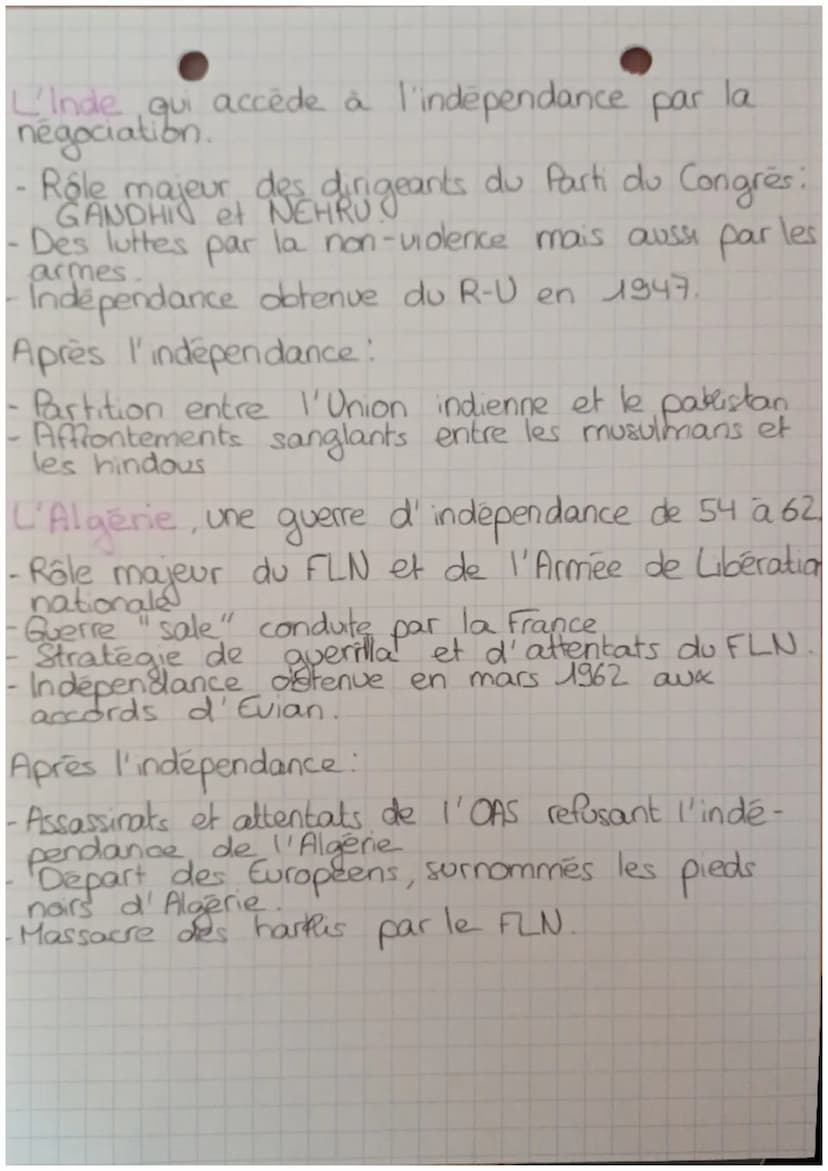 L'Inde qui accède à l'indépendance par la
négociation.
- Rôle majeur des dirigeants du Parti du Congrès :
GANDHI et NEHRU
- Des luttes par la non-violence mais aussi par les
armes.
- Indépendance obtenue du R-U en 1947.
Après l'indépendance :
- Partition entre l'Union indienne et le pakistan
- Affrontements sanglants entre les musulmans et
les hindous
L'Algérie, une guerre d'indépendance de 54 à 62
- Rôle majeur du FLN et de l'Armée de Libératio
nationale
- Guerre "sale" condute par la France
- Stratégie de guerilla et d'attentats du FLN.
- Indépendance obtenue en mars 1962 aux
accords d'Evian.
Après l'indépendance :
- Assassinats et attentats de l'OAS refusant l'indé-
pendance de l'Algérie
- Départ des Européens, surnommés les pieds
noirs d'Algérie.
- Massacre des harkis par le FLN.